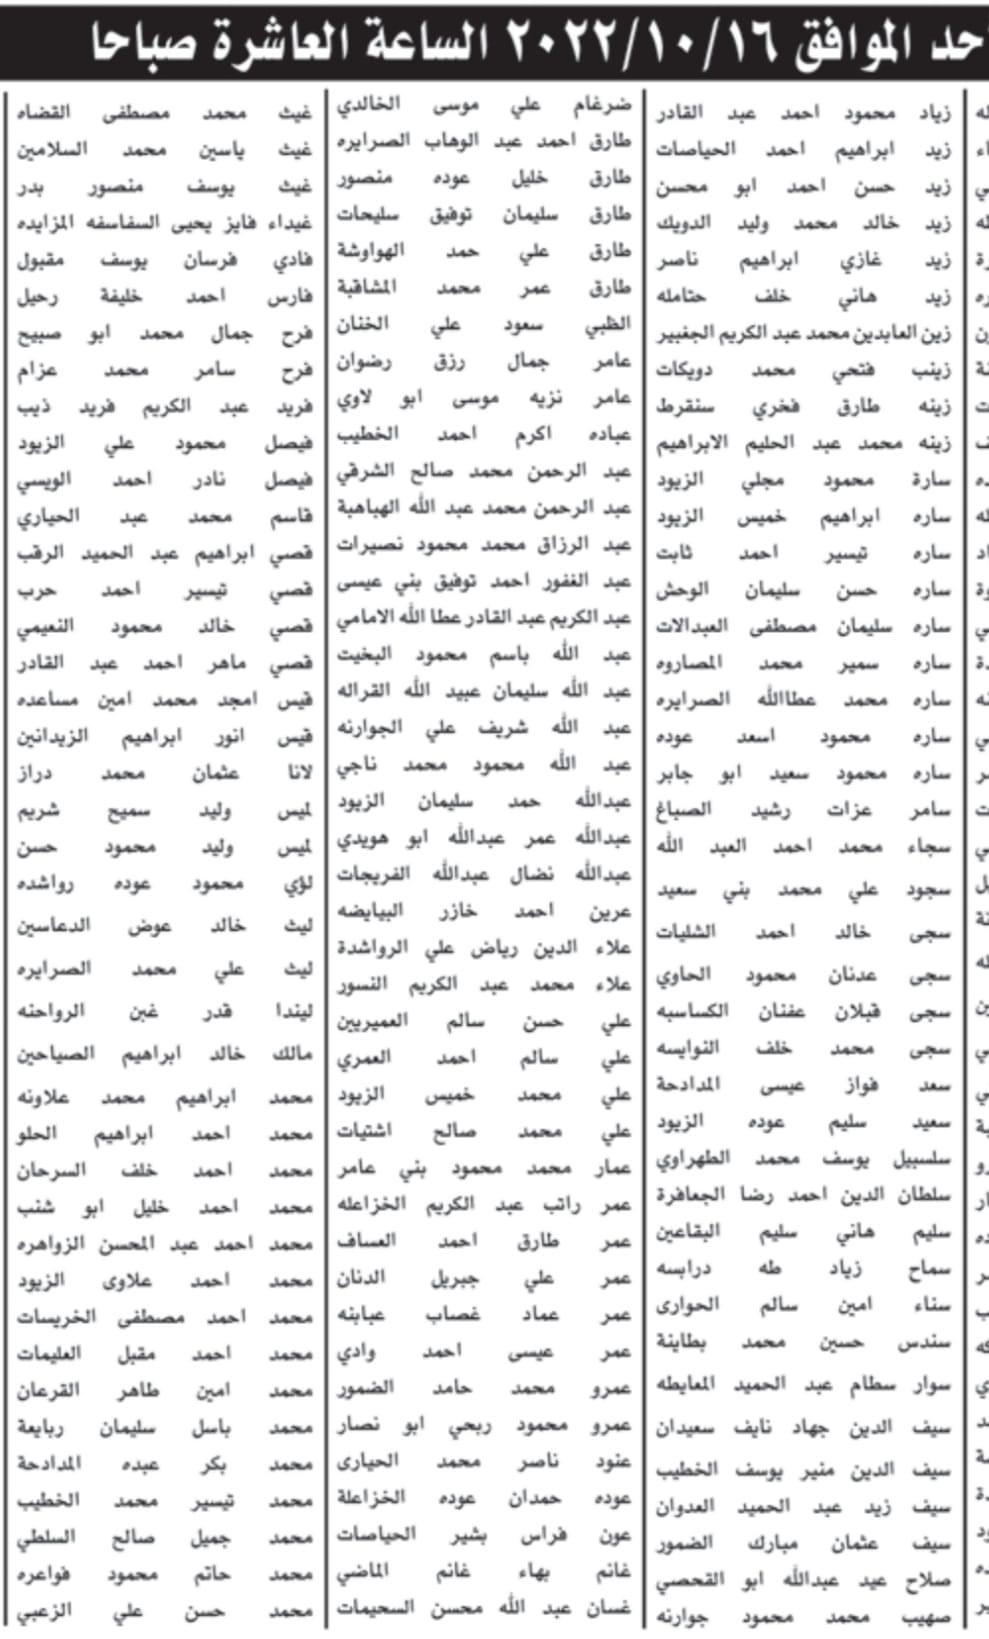 الموافق ٢٠٢٢/١٠/١٦ الساعة العاشرة صباحا
زياد محمود احمد عبد القادر
زيد ابراهيم احمد الحياصات
زيد حسن احمد ابو محسن
زيد خالد محمد وليد الدويك
زيد غازي ابراهيم ناصر
زيد هاني خلف حتامله
زين العابدين محمد عبد الكريم الجغبير
زينب فتحي محمد دويكات
زينه طارق فخري سنقرط
زينه محمد عبد الحليم الابراهيم
سارة محمود مجلي الزيود
ساره ابراهيم خميس الزيود
ساره تيسير احمد ثابت
ساره حسن سليمان الوحش
ساره سليمان مصطفى العبدالات
ساره سمير محمد المصاروه
ساره محمد عطاالله الصرايره
ساره محمود اسعد عوده
ساره محمود سعيد ابو جابر
سامر عزات رشيد الصباغ
سجاء محمد احمد العبد الله
سجود علي محمد بني سعيد
سجى خالد احمد الشليات
سجى عدنان محمود الحاوي
سجى قبلان عفنان الكساسبه
سجى محمد خلف النوايسه
سعد فواز عيسى المدادحة
سعيد سليم عوده الزيود
سلسبيل يوسف محمد الطهراوي
سلطان الدين احمد رضا الجعافرة
سليم هاني سليم البقاعين
سماح زياد طه درابسه
سناء امين سالم الحوارى
سندس حسين محمد بطاينة
سوار سطام عبد الحميد المعايطه
سيف الدين جهاد نايف سعيدان
سيف الدين منير يوسف الخطيب
سيف زيد عبد الحميد العدوان
سيف عثمان مبارك الضمور
صلاح عيد عبدالله ابو القحصي
صهيب محمد محمود جوارنه
ضرغام علي موسى الخالدي
طارق احمد عبد الوهاب الصرايره
طارق خليل عوده منصور
طارق سليمان توفيق سليحات
طارق علي حمد الهواوشة
طارق عمر محمد المشاقبة
الظبي سعود علي الخنان
عامر جمال رزق رضوان
عامر نزيه موسى ابو لاوي
عباده اكرم احمد الخطيب
عبد الرحمن محمد صالح الشرقي
عبد الرحمن محمد عبد الله الهباهبة
عبد الرزاق محمد محمود نصيرات
عبد الغفور احمد توفيق بني عيسى
عبد الكريم عبد القادر عطا الله الامامي
عبد الله باسم محمود البخيت
عبد الله سليمان عبيد الله القراله
عبد الله شريف علي الجوارنه
عبد الله محمود محمد ناجي
عبدالله حمد سليمان الزيود
عبدالله عمر عبدالله ابو هويدي
عبدالله نضال عبدالله الفريجات
عرين احمد خازر البيايضه
علاء الدين رياض علي الرواشدة
علاء محمد عبد الكريم النسور
علي حسن سالم العميريين
علي سالم احمد العمري
علي محمد خميس الزيود
علي محمد صالح اشتيات
عمار محمد محمود بني عامر
عمر راتب عبد الكريم الخزاعله
عمر طارق احمد العساف
عمر علي جبريل الدنان
عمر عماد غصاب عبابنه
عمر عيسى احمد وادي
عمرو محمد حامد الضمور
عمرو محمود ربحي ابو نصار
عنود ناصر محمد الحيارى
عوده حمدان عوده الخزاعلة
عون فراس بشير الحياصات
غانم بهاء غانم الماضي
غسان عبد الله محسن السحيمات
غيث محمد مصطفى القضاه
غيث ياسين محمد السلامين
غيث يوسف منصور بدر
غيداء فايز يحيى السفاسفه المزايده
فادي فرسان يوسف مقبول
فارس احمد خليفة رحيل
فرح جمال محمد ابو صبيح
فرح سامر محمد عزام
فريد عبد الكريم فريد ذيب
فيصل محمود علي الزيود
فيصل نادر احمد الويسي
قاسم محمد عبد الحياري
قصي ابراهيم عبد الحميد الرقب
قصي تيسير احمد حرب
قصي خالد محمود النعيمي
قصي ماهر احمد عبد القادر
قيس امجد محمد امين مساعده
قيس انور ابراهيم الزيدانين
لانا عثمان محمد دراز
لميس وليد سميح شريم
لميس وليد محمود حسن
لؤي محمود عوده رواشده
ليث خالد عوض الدعاسين
ليث علي محمد الصرايره
ليندا قدر غبن الرواحنه
مالك خالد ابراهيم الصياحين
محمد ابراهيم محمد علاونه
محمد احمد ابراهيم الحلو
محمد احمد خلف السرحان
محمد احمد خليل ابو شنب
محمد احمد عبد المحسن الزواهره
محمد احمد علاوى الزيود
محمد احمد مصطفى الخريسات
محمد احمد مقبل العليمات
محمد امين طاهر القرعان
محمد باسل سليمان ربايعة
محمد بكر عبده المدادحة
محمد تيسير محمد الخطيب
محمد جميل صالح السلطي
محمد حاتم محمود فواعره
محمد حسن علي الزعبي